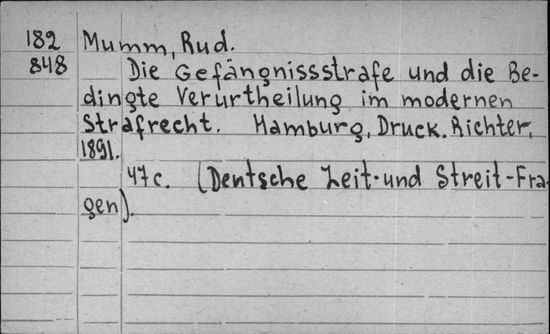 182 Mumm, Rud.
848 Die Gefängnissstrafe und die Be-
dingte Verurtheilung im modernen
Strafrecht. Hamburg, Druck. Richter,
1891.
47 c. (Deutsche Zeit- und Streit-Fra-
gen).